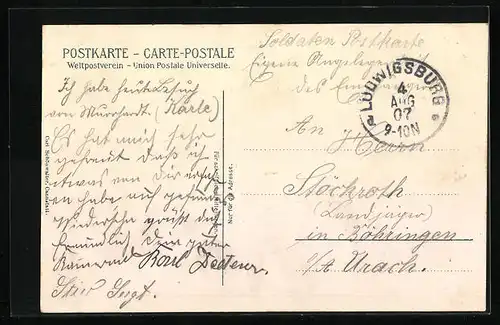 POSTKARTE – CARTE-POSTALE
Weltpostverein – Union Postale Universelle.
Ich habe heute Besuch
von Murrhardt. (Karle)
Es hat mich sehr
gefreut daß ich
etwas von Dir
en habe auf
Wiedersehn grüßt dich
Freundlich Dein guter
Kamerad Karl
Soldaten Postkarte
Eigene Angelegenheit
des Empfängers
LUDWIGSBURG
4
AUG
07
9-10N
An Herrn
Stöckroth
(Landjäger)
in Böhringen
O/A. Urach.
Nur für die Adresse.